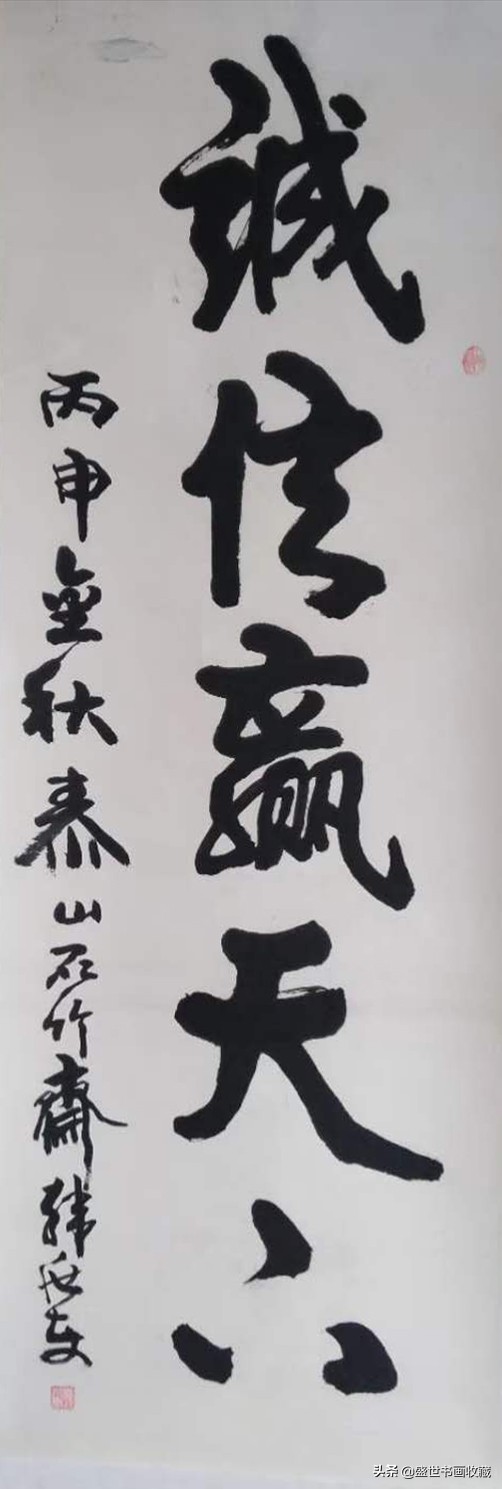 誠信贏天下
丙申金秋泰山石竹齋韩
头条@盛世书画收藏